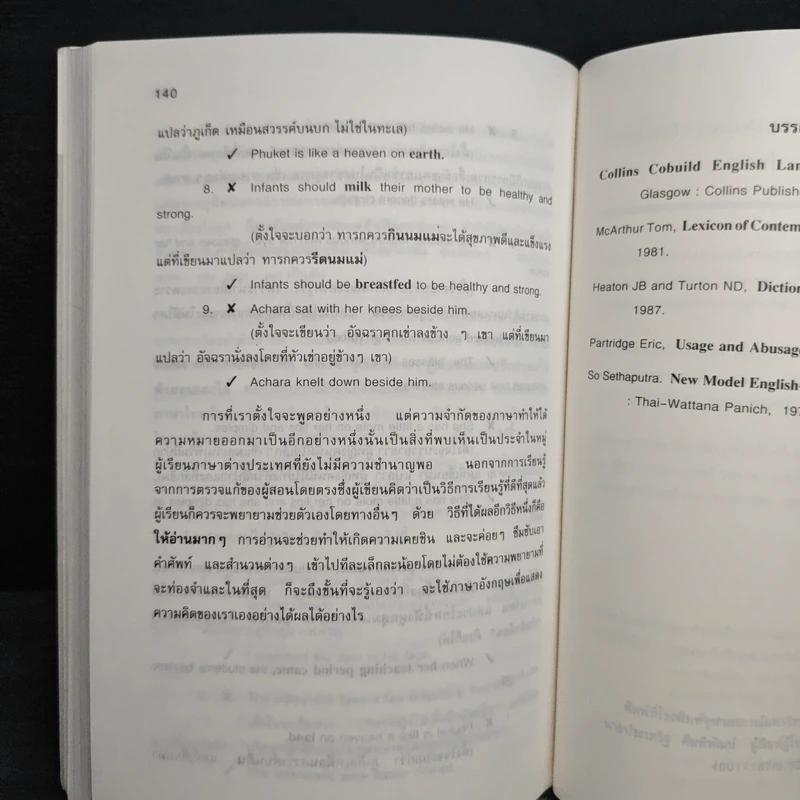 140
แปลว่าภูเก็ต เหมือนสวรรค์บนบก ไม่ใช่ในทะเล)
✓ Phuket is like a heaven on earth.
8. ✘ Infants should milk their mother to be healthy and
strong.
(ตั้งใจจะบอกว่า ทารกควรกินนมแม่จะได้สุขภาพดีและแข็งแรง
แต่ที่เขียนมาแปลว่า ทารกควรรีดนมแม่)
✓ Infants should be breastfed to be healthy and strong.
9. ✘ Achara sat with her knees beside him.
(ตั้งใจจะเขียนว่า อัจฉราคุกเข่าลงข้าง ๆ เขา แต่ที่เขียนมา
แปลว่า อัจฉรานั่งลงโดยที่หัวเข่าอยู่ข้างๆ เขา)
✓ Achara knelt down beside him.
การที่เราตั้งใจจะพูดอย่างหนึ่ง แต่ความจำกัดของภาษาทำให้ได้
ความหมายออกมาเป็นอีกอย่างหนึ่งนั้นเป็นสิ่งที่พบเห็นเป็นประจำในหมู่
ผู้เรียนภาษาต่างประเทศที่ยังไม่มีความชำนาญพอ นอกจากการเรียนรู้
จากการตรวจแก้ของผู้สอนโดยตรงซึ่งผู้เขียนคิดว่าเป็นวิธีการเรียนรู้ที่ดีที่สุดแล้ว
ผู้เรียนก็ควรจะพยายามช่วยตัวเองโดยทางอื่นๆ ด้วย วิธีที่ได้ผลอีกวิธีหนึ่งก็คือ
ให้อ่านมากๆ การอ่านจะช่วยทำให้เกิดความเคยชิน และจะค่อยๆ ซึมซับเอา
คำศัพท์ และสำนวนต่างๆ เข้าไปทีละเล็กละน้อยโดยไม่ต้องใช้ความพยายามที่
จะท่องจำและในที่สุด ก็จะถึงขั้นที่จะรู้เองว่า จะใช้ภาษาอังกฤษเพื่อแสดง
ความคิดของเราเองอย่างได้ผลได้อย่างไร
Collins Cobuild English Lan
Glasgow : Collins Publish
McArthur Tom, Lexicon of Contem
1981.
Heaton JB and Turton ND, Diction
1987.
Partridge Eric, Usage and Abusag
So Sethaputra. New Model English-
: Thai-Wattana Panich, 197